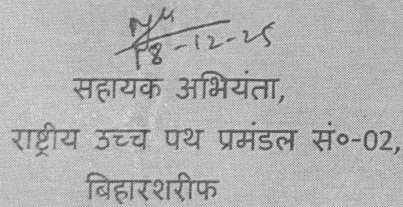 18-12-25
सहायक अभियंता,
राष्ट्रीय उच्च पथ प्रमंडल सं०-02,
बिहारशरीफ